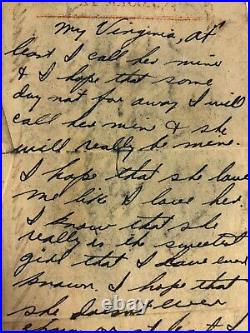 My Virginia, at
least I call her mine
& I hope that some
day not far away I will
call her min & she
will really be mine.
I hope that she love
me like I love her,
I know that she
really is the sweetest
girl that I have ever
known. I hope that
she doesn't ever